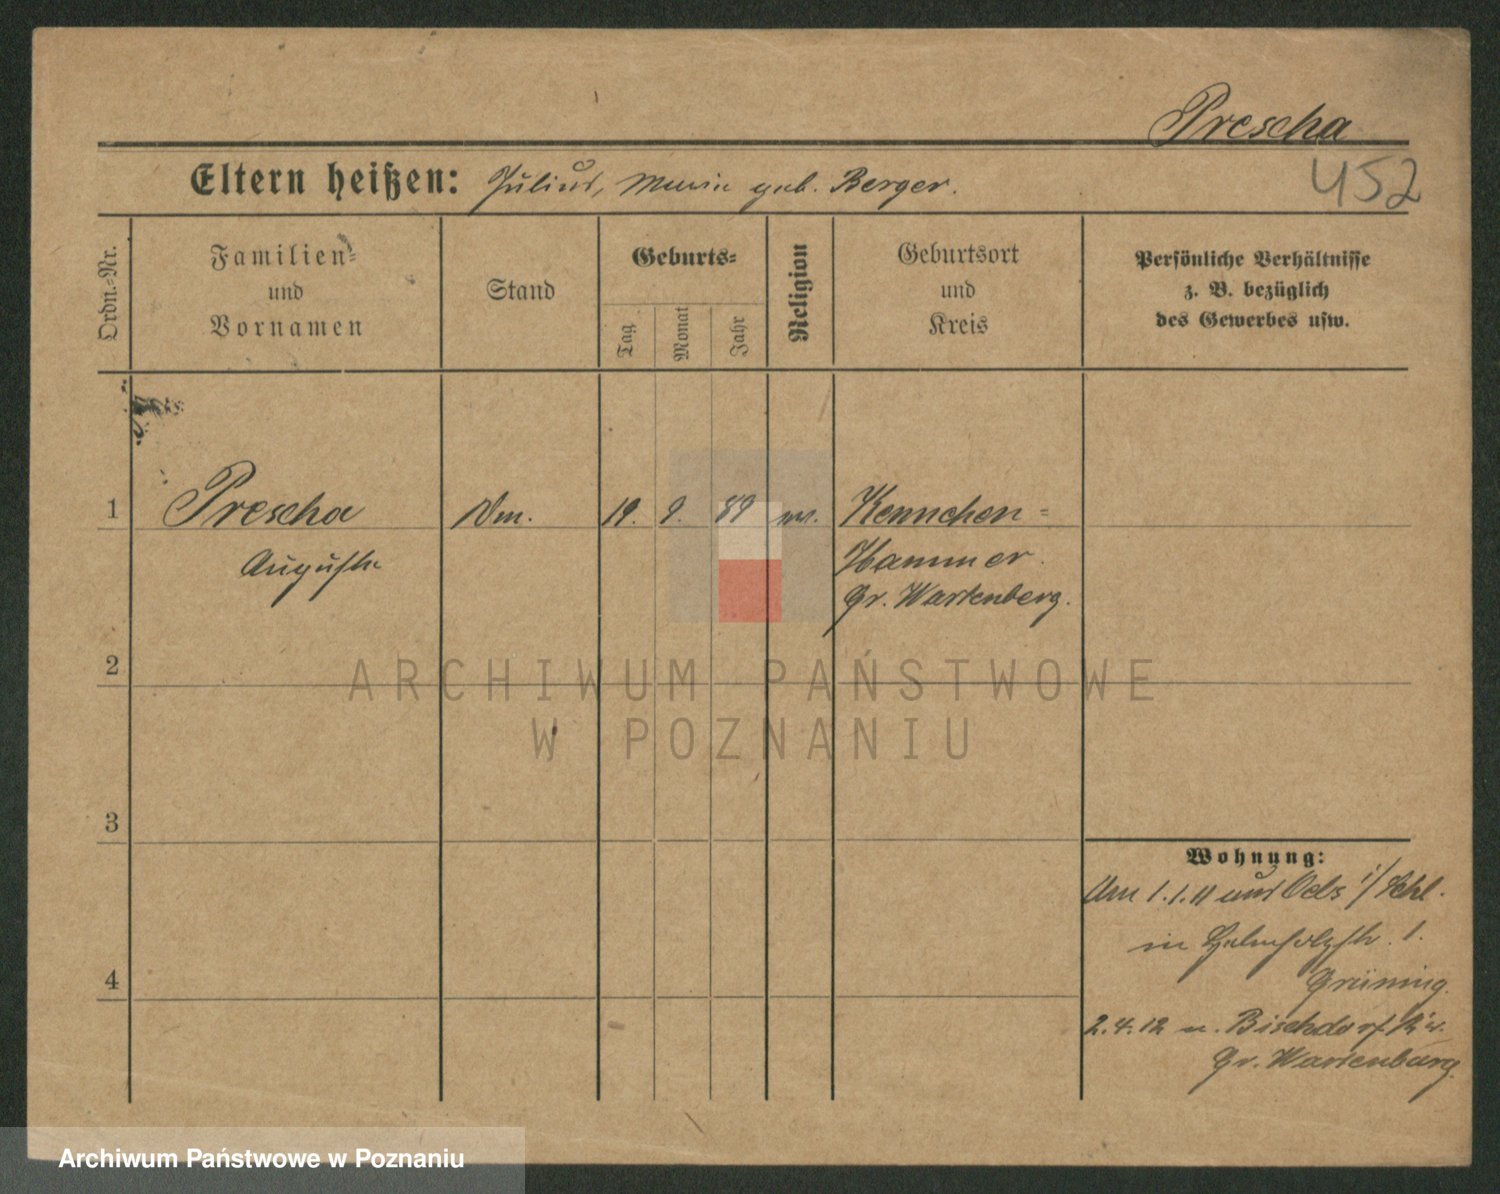 Prescha
452
Eltern heißen: Julius, Marie geb. Berger.
Ordn.-Nr.
Familien-
und
Vornamen
Stand
Geburts-
Tag
Monat
Jahr
Religion
Geburtsort
und
Kreis
Persönliche Verhältnisse
z. B. bezüglich
des Gewerbes usw.
1 Prescha 19. 9. 89 Kennchen-
Auguste Hammer.
Gr. Wartenberg.
2
ARCHIWUM PAŃSTWOWE
W POZNANIU
3
Wohnung:
Am 1.1.11 aus Oels i/Schl.
in 1.
Grüning.
4
2.4.12 n. Bischdorf Kr.
Gr. Wartenburg.
Archiwum Państwowe w Poznaniu